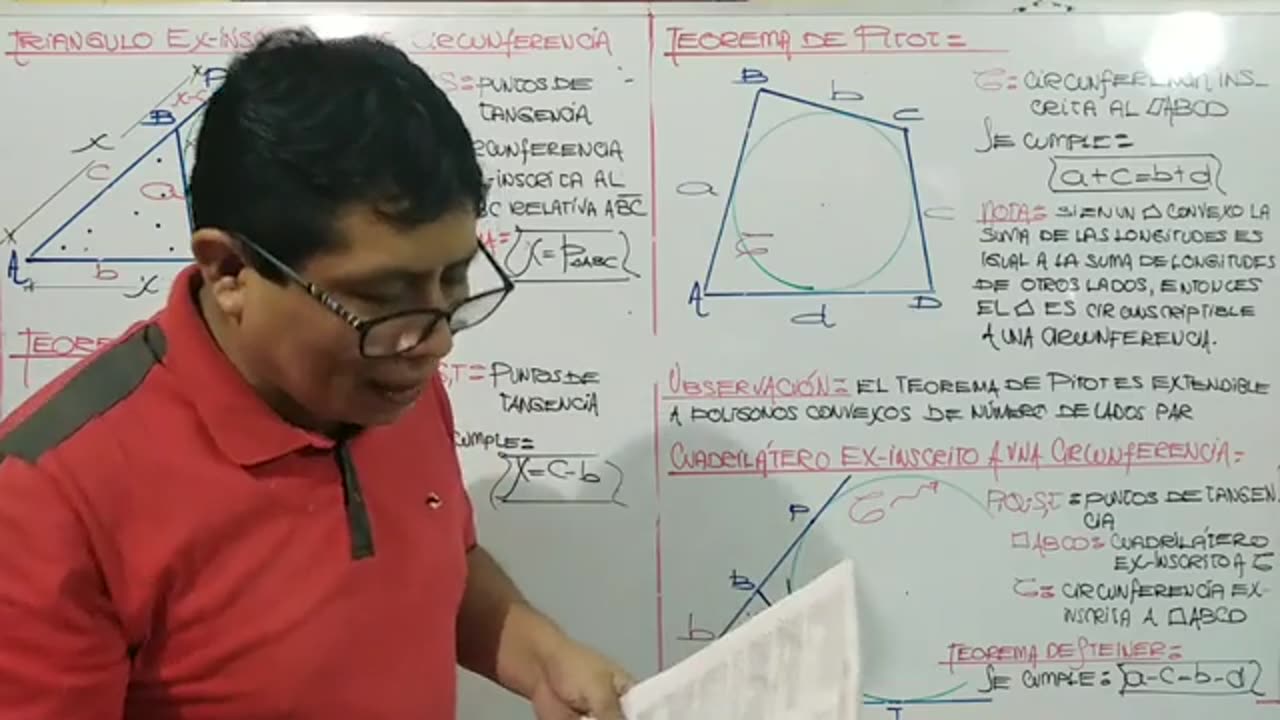 TRIANGULO EX-INS
CIRCUNFERENCIA
S= PUNTOS DE
TANGENCIA
CUNFERENCIA
-INSCRITA AL
BC RELATIVA A BC
X = P△ABC
P
B
x
c
a
A
b
x
TEORE
S,T = PUNTOS DE
TANGENCIA
CUMPLE=
X = C-b
TEOREMA DE PITOT=
B
b
C
a
c
A
d
D
G
G= CIRCUNFERENCIA INS_
CRITA AL ABCD
SE CUMPLE=
a+c=b+d
NOTA= SI EN UN CONVEXO LA
SUMA DE LAS LONGITUDES ES
IGUAL A LA SUMA DE LONGITUDES
DE OTROS LADOS, ENTONCES
EL ES CIRCUNSCRIPTIBLE
A UNA CIRCUNFERENCIA.
OBSERVACIÓN= EL TEOREMA DE PITOT ES EXTENDIBLE
A POLIGONOS CONVEXOS DE NÚMERO DE LADOS PAR
CUADRILÁTERO EX-INSCRITO A UNA CIRCUNFERENCIA=
P
G
B
b
T
P,Q,S,T = PUNTOS DE TANGEN.
CIA
□ABCD= CUADRILÁTERO
EX-INSCRITO A G
G= CIRCUNFERENCIA EX-
INSCRITA A □ABCD
TEOREMA DE STEINER=
SE CUMPLE= a-c=b-d